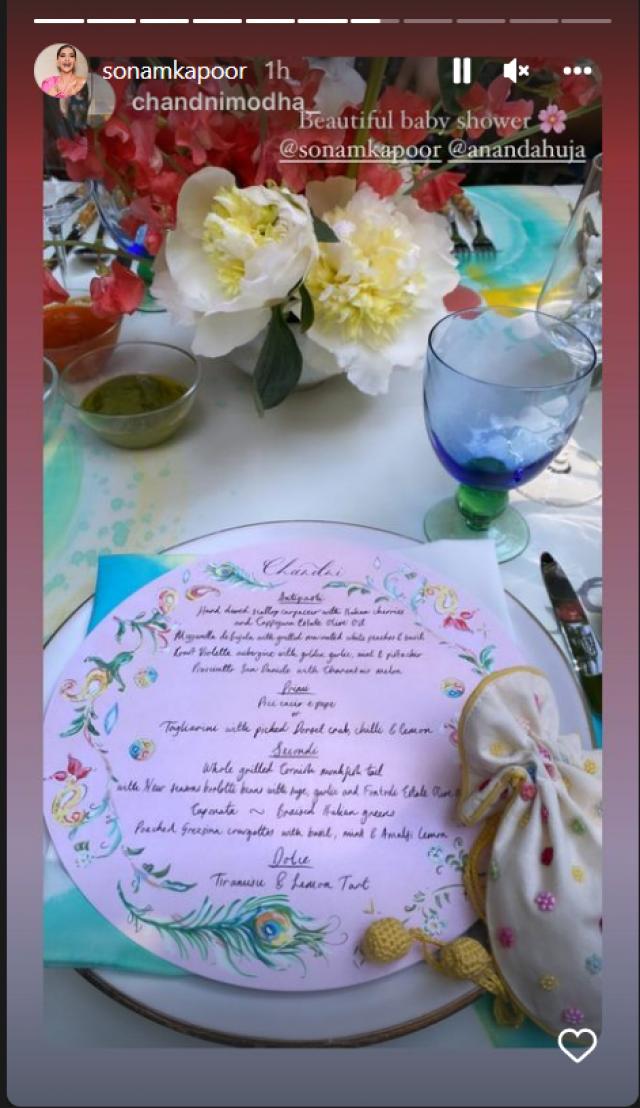 sonamkapoor 1h
chandnimodha_
Beautiful baby shower
@sonamkapoor @anandahuja
Chandni
Antipasti
Hand dived scallop carpaccio with Italian cherries
and Capezzana Estate Olive Oil
Mozzarella di bufala with grilled marinated white peaches & basil
Violette aubergine with golden garlic, mint & pistachio
Prosciutto San Daniele with Charentais melon
Primi
Pici cacio e pepe
or
Taglierini with picked Dorset crab, chilli & lemon
Secondi
Whole grilled Cornish monkfish tail
with New seasons borlotti beans with sage, garlic and Estate Olive
Caponata ~ Braised Italian greens
Poached Grezzina courgettes with basil, mint & Amalfi lemon
Dolce
Tiramisu & Lemon Tart